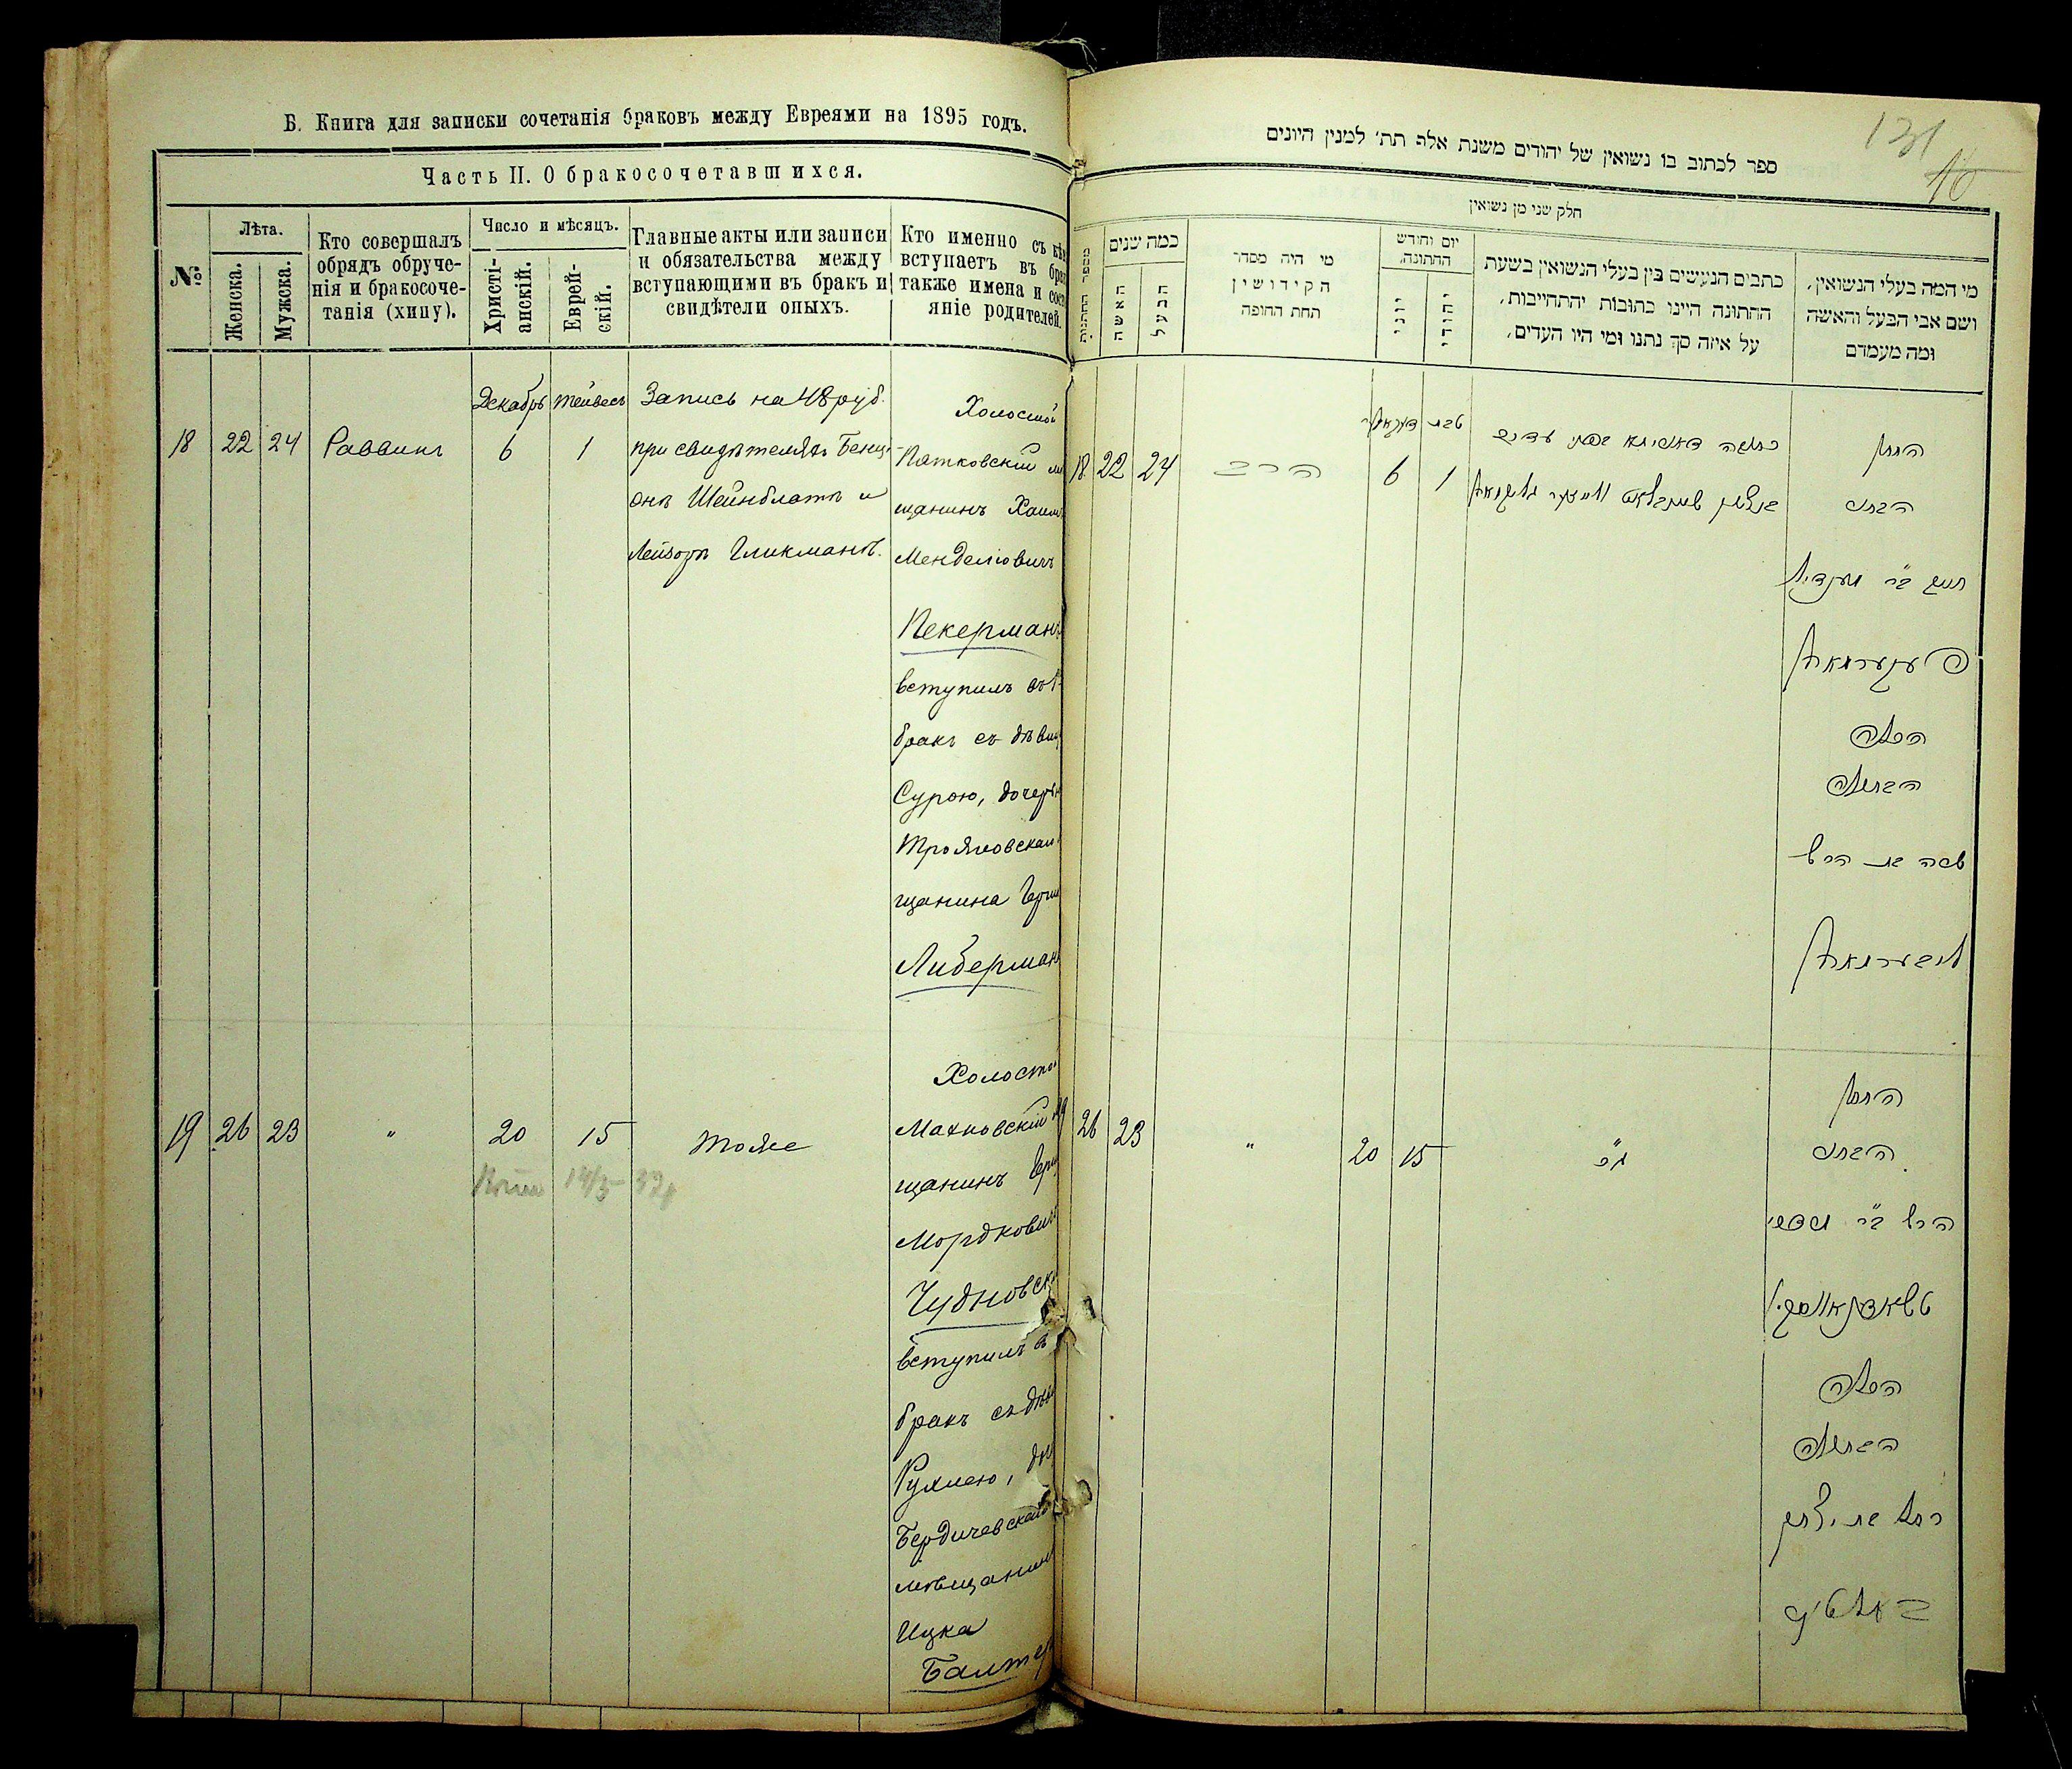 Б. Книга для записки сочетанія браковъ между Евреями на 1895 годъ.
Часть II. О бракосочетавшихся.
№
Лѣта.
Женска.
Мужска.
Кто совершалъ
обрядъ обруче-
нія и бракосоче-
танія (хипу).
Число и мѣсяцъ.
Христі-
анскій.
Еврей-
скій.
Главные акты или записи
и обязательства между
вступающими въ бракъ и
свидѣтели оныхъ.
Кто именно съ кѣмъ
вступаетъ въ бракъ
также имена и сост
яніе родителей.
Декабрь Тейвесъ
18 22 24 Раввинъ 6 1
Запись на 48 руб.
при свидѣтеляхъ Бенці-
онъ Шейнблатъ и
Лейзоръ Гликманъ.
Холостой
Пятковскій мѣ
щанинъ Хаимъ
Менделіовичъ
Пекерманъ
вступилъ въ 1й
бракъ съ дѣвиц
Сурою, дочерью
Трояновскаго
щанина Герш
Либерманъ
19 26 23 " 20 15 Тоже
Холостой
Махновскій мѣ
щанинъ Герш
Мордковичъ
Чудновск
вступилъ въ
бракъ съ дѣв
Рухлею, до
Бердичевскаго
мѣщанина
Ицка
Балтер
131
10
ספר לכתוב בו נשואין של יהודים משנת אלף תת׳ למנין היונים
חלק שני מן נשואין
מספר החתונות
כמה שנים
האשה
הבעל
מי היה מסדר
הקידושין
תחת החופה
יום וחודש
החתונה,
יוני
יהודי
כתבים הנעשים בין בעלי הנשואין בשעת
החתונה היינו כתובות והתחייבות,
על איזה סך נתנו ומי היו העדים,
מי המה בעלי הנשואין,
ושם אבי הבעל והאשה
ומה מעמדם
18 22 24 הרב 6 1
טבת
החתן
הבחור
חיים ב״ר מענדיל
פעקערמאן
הכלה
הבתולה
שרה בת הרש
ליבערמאן
19 26 23 " 20 15
החתן
הבחור
הרש ב״ר מרדכי
טשודנאווסקי
הכלה
הבתולה
רחל בת יצחק
באלטער